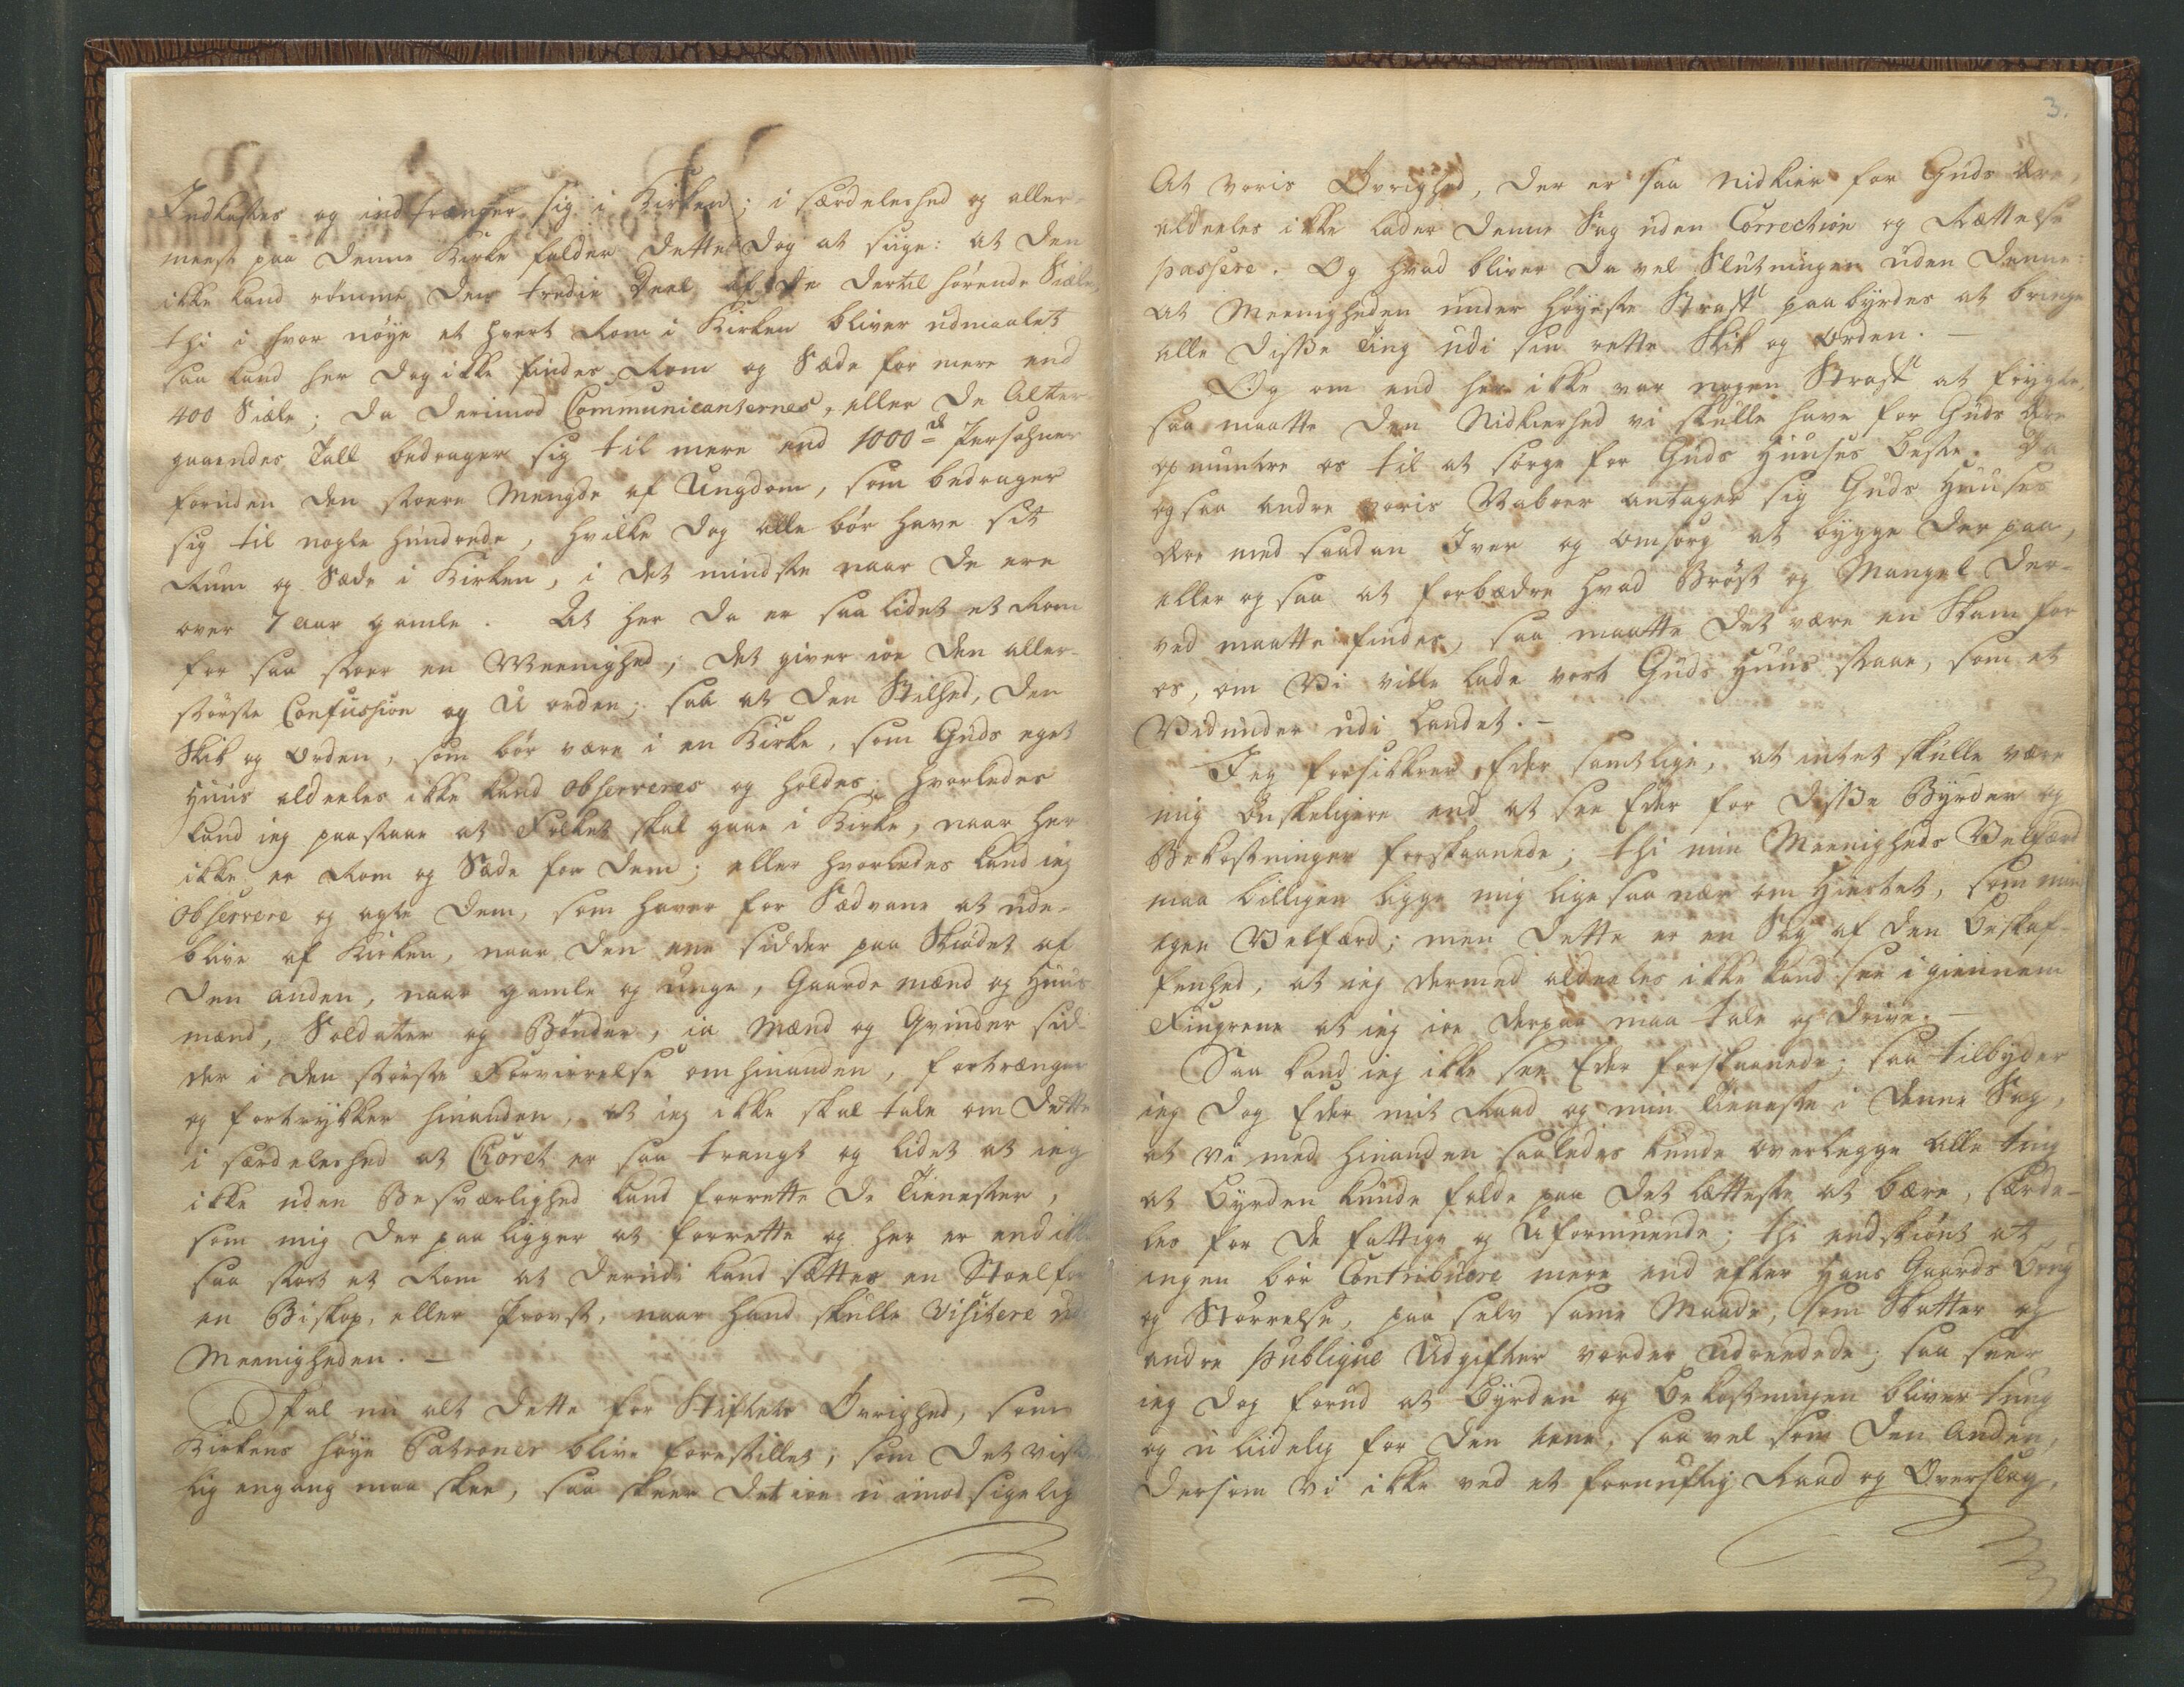 Indkastes og indtrænger sig i Kirken; i særdeleshed og aller-
meest paa denne Kirke falder dette dog at siige: at den
ikke kand rømme den tredie Deel af de dertil hørende Siæle,
thi i hvor nøye et hvert Rom i Kirken bliver udmaalet
saa kand her dog ikke findes Rom og Sæde for mere end
400 Siæle; da derimod Communicanternes, eller de Alter-
gaaendes Tall bedrager sig til mere end 1000de Persohner
foruden den stoere Mengde af Ungdom, som bedrager
sig til nogle hundrede, hvilke dog alle bør have sit
Rum og Sæde i Kirken, i det mindste naar de ere
over 7 aar gamle. At her da er saa lidet et Rom
for saa stoer en Meenighed, det giver ioe den aller-
største Confussion og U orden; saa at den Stilhed, den
Skik og Orden, som bør være i en Kirke, som Guds eget
Huus aldeeles ikke kand observeres og holdes; hvorledes
kand ieg paastaae at Folket skal gaae i Kirke, naar her
ikke er Rom og Sæde for dem; eller hvorledes kand ieg
observere og agte dem, som haver for Sædvane at ude-
blive af Kirken, naar den ene sidder paa Skiødet af
den anden, naar gamle og unge, Gaardemænd og Huus-
mænd, Soldater og Bønder, ia Mænd og Qvinder sid-
der i den største Forvirrelse om hinanden, fortrænger
og fortrykker hinanden, at ieg ikke skal tale om dette
i særdeleshed at Choret er saa trangt og lidet at ieg
ikke uden Besværlighed kand forrette de Tienester,
som mig der paa ligger at forrette og her er end ikke
saa stort et Rom at derudi kand sættes en Stoel for
en Biskop, eller Provst, naar hand skulle Visitere udi
Meenigheden. –
Skal nu alt dette for Stiftets Øvrighed, som
Kirkens høye Patroner blive forestillet, som det visse-
lig engang maa skee, saa skeer det ioe u imodsigelig
3.
At voris Øvrighed, der er saa nidkier for Guds Ære,
aldeeles ikke lader denne Sag uden Correction og Rættelse
passere. Og hvad bliver da vel Slutningen uden denne:
at Meenigheden under høyeste Straff paabyrdes at bringe
alle disse Ting udi sin rette Skik og Orden. –
Og om end her ikke var nogen Straff at frygte,
saa maatte den Nidkierhed vi skulle have for Guds Ære
opmuntre os til at sørge for Guds Huuses beste. Da
ogsaa andre voris Naboer antager sig Guds Huuses
Ære med saadan Iver og omsorg at bygge der paa,
eller og saa at forbædre hvad Brøst og Mangel der-
ved maatte findes, saa maatte det være en Skam for
os, om Vi ville lade vort Guds Huus staae, som et
Vidunder udi Landet. –
Jeg forsikkrer Eder samtlige, at intet skulle være
mig ønskeligere end at see Eder for disse Byrder og
Bekostninger forskaanede; thi min Meenigheds Velfærd
maa billigen ligge mig lige saa nær om Hiertet, som min
egen Velfærd; men dette er en Sag af den beskaf-
fenhed, at ieg dermed aldeeles ikke kand see igiennem
Fingrene at ieg ioe derpaa maa tale og drive. –
Saa kand ieg ikke see Eder forskaanede; saa tilbyder
ieg dog Eder mit Raad og min Tieneste i denne Sag,
at vi med hinanden saaledes kunde overlegge alle ting
at Byrden kunde falde paa det lætteste at bære, særde-
les for de fattige og Uformuende; thi endskiønt at
ingen bør Contribuere mere end efter hans Gaards brug
og Størrelse, paa selv same Maade, som Skatter og
andre publique Udgifter vorder udreedede; saa seer
ieg dog forud at Byrden og Bekostningen bliver tung
og u liidelig for den eene, saa vel som den anden,
dersom vi ikke ved et fornuftig Raad og Overslag,